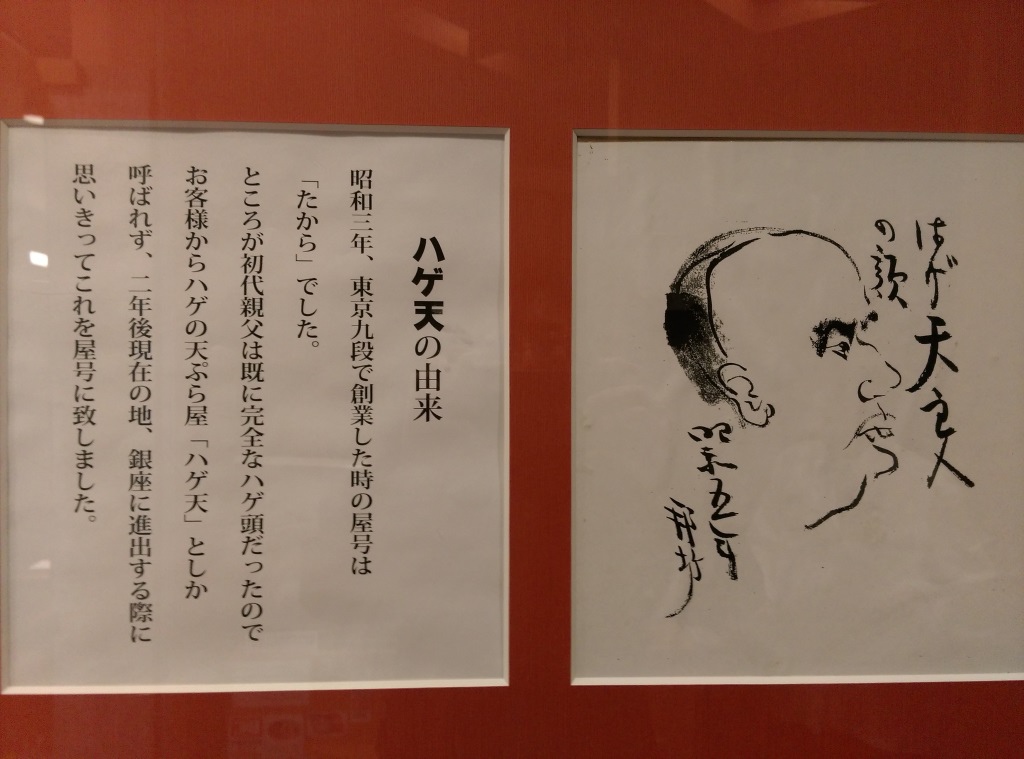 はげ天主人
の顔
昭和五年
ハゲ天の由来
昭和三年、東京九段で創業した時の屋号は
「たから」でした。
ところが初代親父は既に完全なハゲ頭だったので
お客様からハゲの天ぷら屋「ハゲ天」としか
呼ばれず、二年後現在の地、銀座に進出する際に
思いきってこれを屋号に致しました。